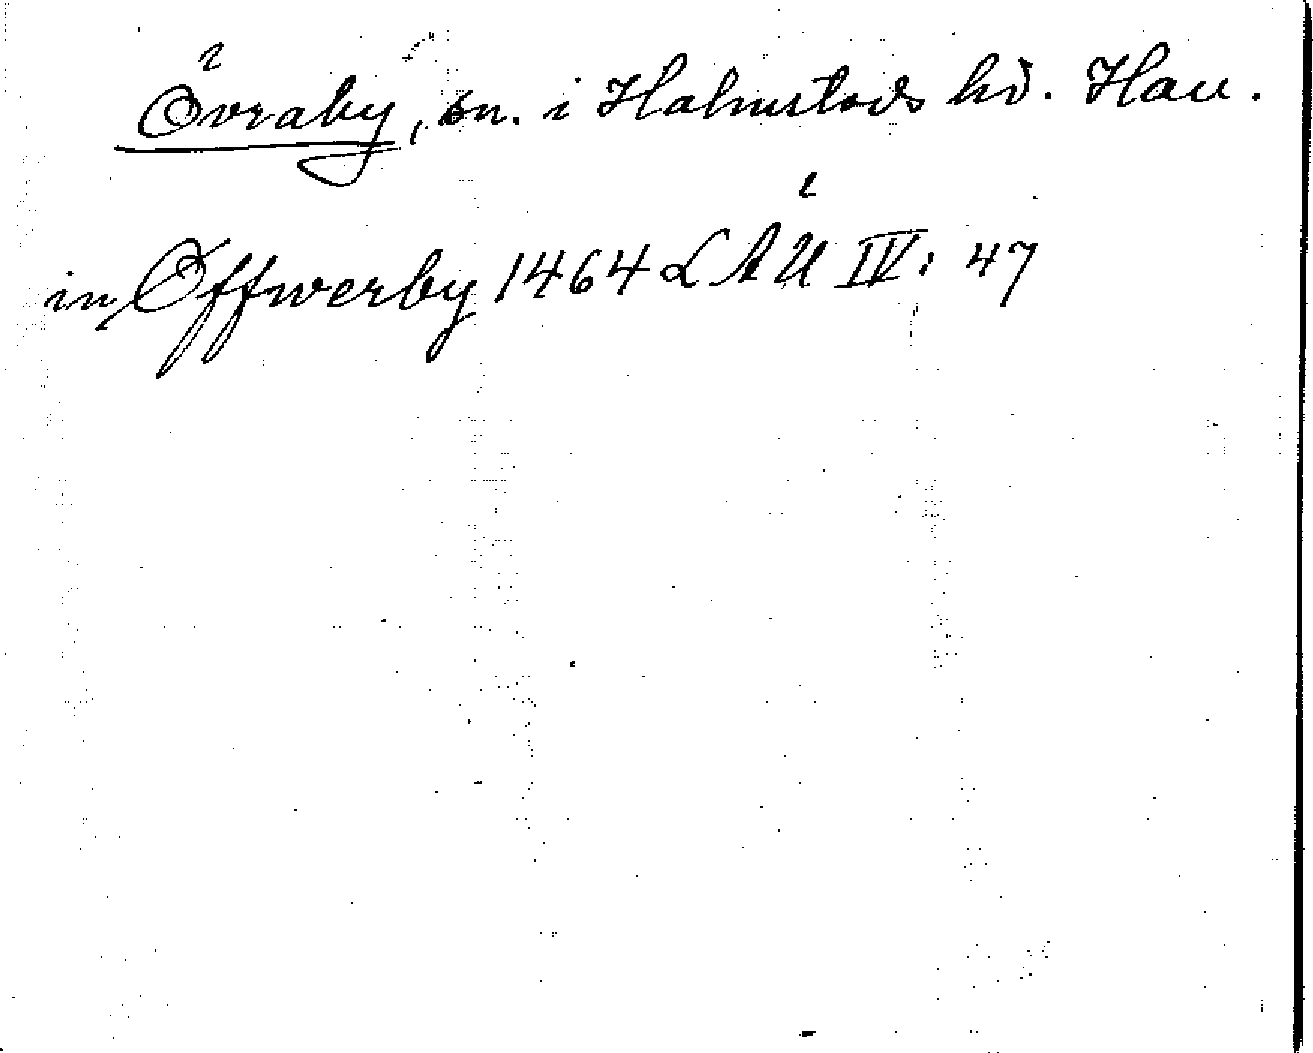 Övraby, sn. i Halmstads hd. Hall.
in Öffwerby 1464 LÄU IV: 47